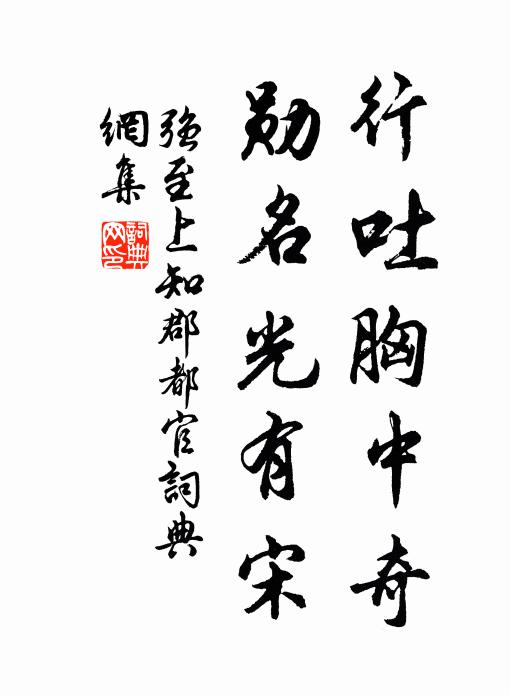 行吐胸中奇
勛名光有宋
強至上知郡都官詞典
網集
詞典網印